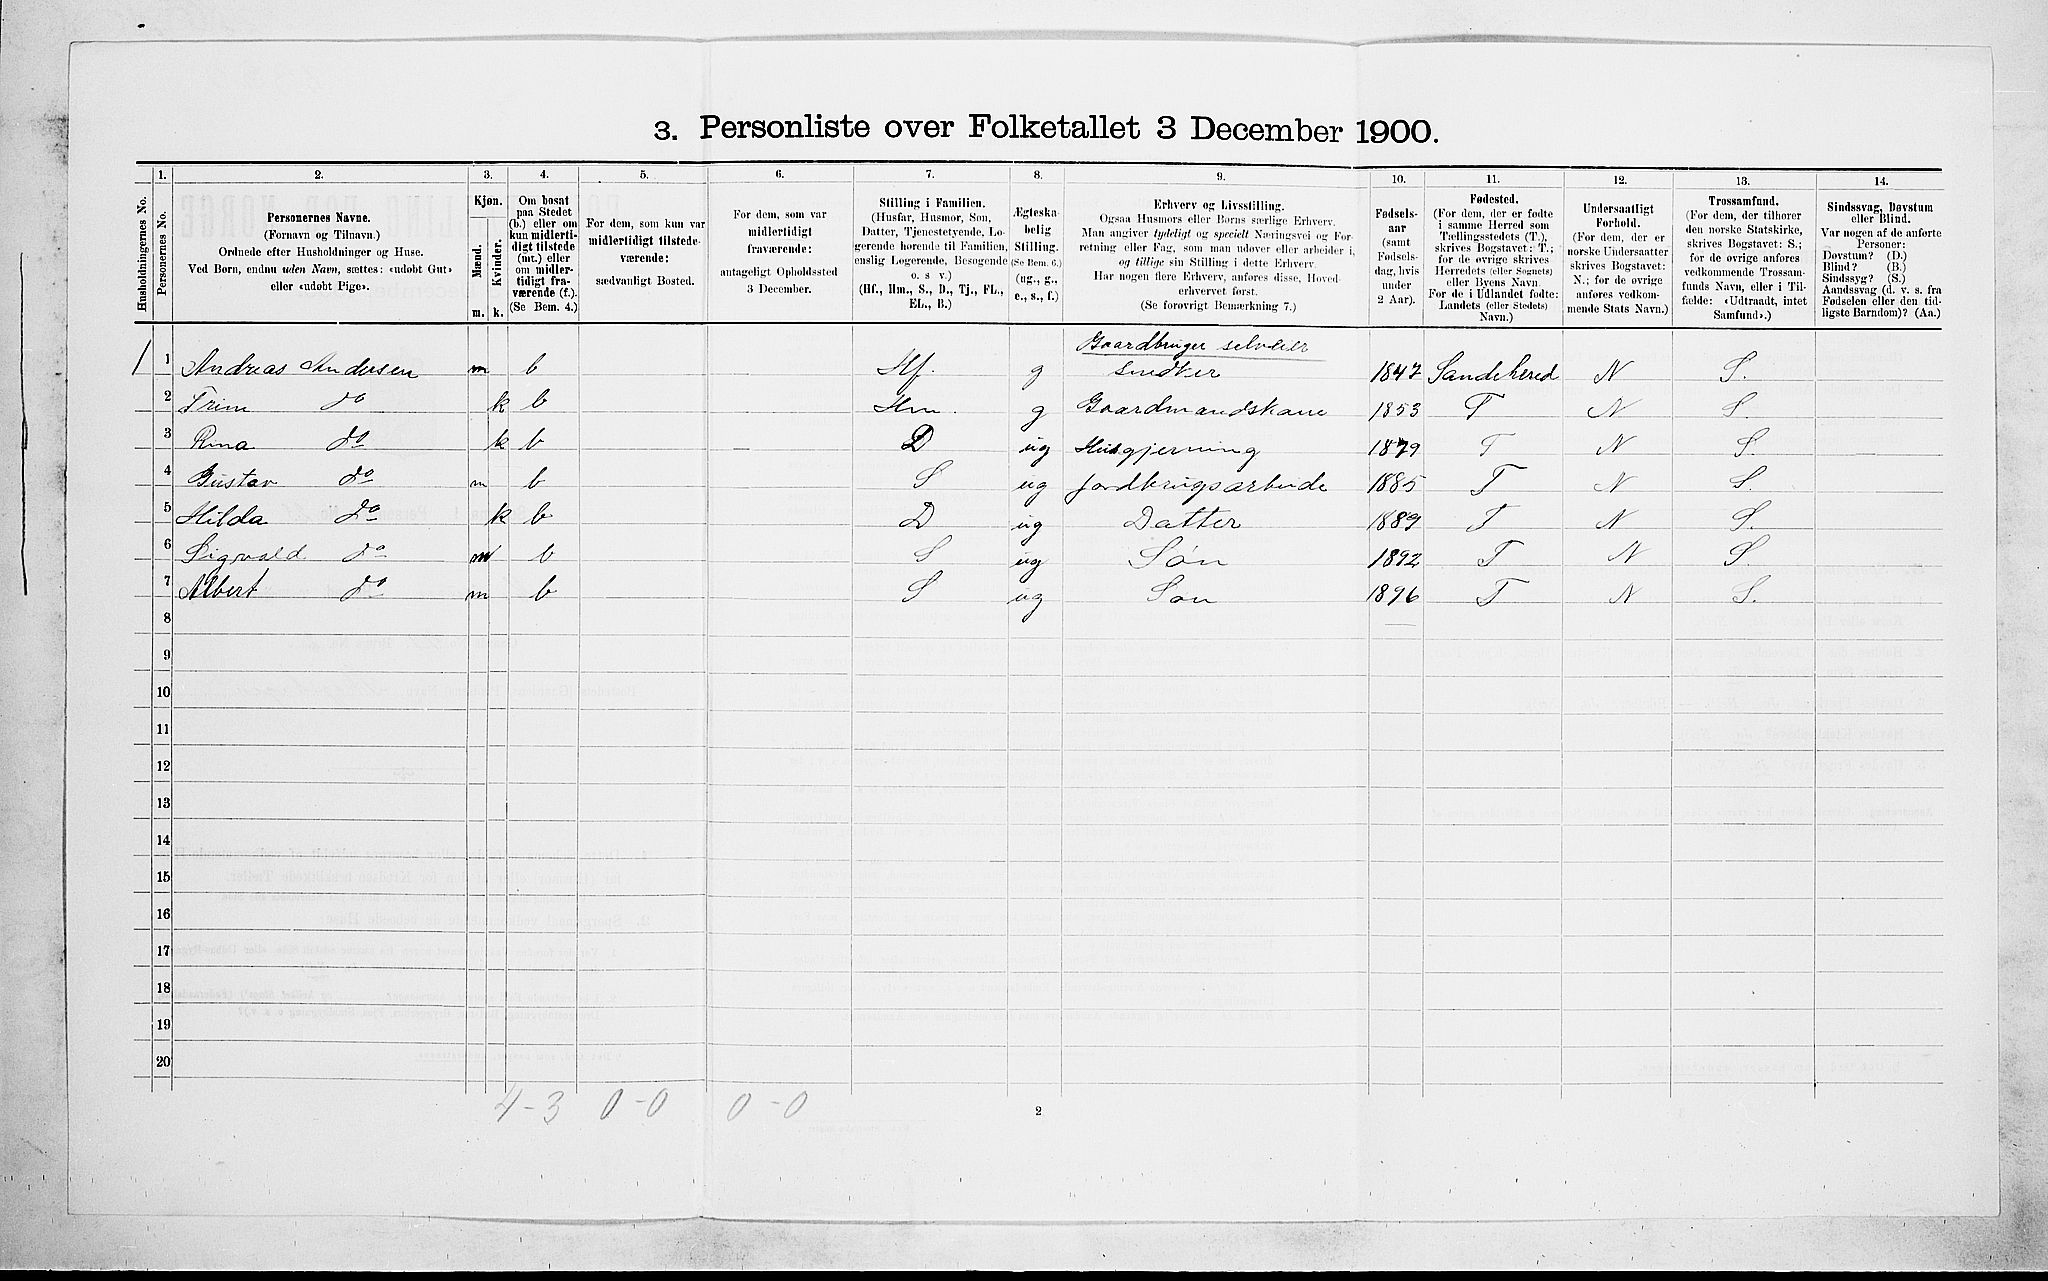 3. Personliste over Folketallet 3 December 1900.
1. 2. 3. 4. 5. 6. 7. 8. 9. 10. 11. 12. 13. 14.
Husholdningernes No.
Personernes No.
Personernes Navne.
(Fornavn og Tilnavn.)
Ordnede efter Husholdninger og Huse.
Ved Børn, endnu uden Navn, sættes: «udøbt Gut»
eller «udøbt Pige».
Kjøn.
Mænd.
Kvinder.
m. k.
Om bosat
paa Stedet
(b.) eller om
kun midlerti-
digt tilstede
(mt.) eller
om midler-
tidigt fra-
værende (f.).
(Se Bem. 4.)
For dem, som kun var
midlertidigt tilstede-
værende:
sædvanligt Bosted.
For dem, som var
midlertidigt
fraværende:
antageligt Opholdssted
3 December.
Stilling i Familien.
(Husfar, Husmor, Søn,
Datter, Tjenestetyende, Lo-
gerende hørende til Familien,
enslig Logerende, Besøgende
o. s. v.)
(Hf., Hm., S., D., Tj., FL.,
EL., B.)
Ægteska-
belig
Stilling.
(Se Bem. 6.)
(ug., g.,
e., s., f.)
Erhverv og Livsstilling.
Ogsaa Husmors eller Børns særlige Erhverv.
Man angiver tydeligt og specielt Næringsvei og For-
retning eller Fag, som man udøver eller arbeider i,
og tillige sin Stilling i dette Erhverv.
Har nogen flere Erhverv, anføres disse, Hoved-
erhvervet først.
(Se forøvrigt Bemærkning 7.)
Fødsels-
aar
(samt
Fødsels-
dag, hvis
under
2 Aar).
Fødested.
(For dem, der er fødte
i samme Herred som
Tællingsstedets (T.),
skrives Bogstavet: T.;
for de øvrige skrives
Herredets (eller Sognets)
eller Byens Navn.
For de i Udlandet fødte:
Landets (eller Stedets)
Navn.)
Undersaatligt
Forhold.
(For dem, der er
norske Undersaatter
skrives Bogstavet:
N.; for de øvrige
anføres vedkom-
mende Stats Navn.)
Trossamfund.
(For dem, der tilhører
den norske Statskirke,
skrives Bogstavet: S.;
for de øvrige anføres
vedkommende Trossam-
funds Navn, eller i Til-
fælde: «Udtraadt, intet
Samfund».)
Sindssvag, Døvstum
eller Blind.
Var nogen af de anførte
Personer:
Døvstum? (D.)
Blind? (B.)
Sindssyg? (S.)
Aandssvag (d. v. s. fra
Fødselen eller den tid-
ligste Barndom)? (Aa.)
Gaardbruger selveier
1 1 Andreas Andersen m b Hf. g snedker 1847 Sandeherred N S.
2 Trine do k b Hm. g Gaardmandskone 1853 T N S.
3 Rina do k b D ug Husgjerning 1879 T N S.
4 Gustav do m b S ug jordbrugsarbeide 1885 T N S.
5 Hilda do k b D ug Datter 1889 T N S.
6 Sigvald do m b S ug Søn 1892 T N S.
7 Albert do m b S ug Søn 1896 T N S.
8
9
10
11
12
13
14
15
16
17
18
19
20
4-3 0-0 0-0
2